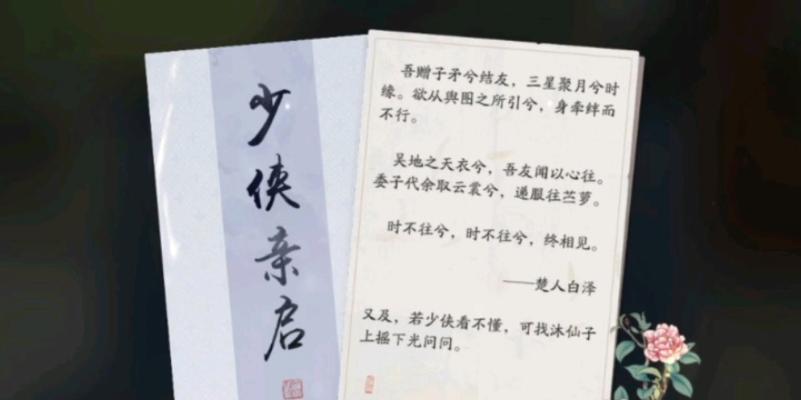 少侠亲启
吾赠子矛兮结友，三星聚月兮时
缘。欲从舆图之所引兮，身牵绊而
不行。
吴地之天衣兮，吾友闻以心往。
委子代余取云裳兮，递服往苎萝。
时不往兮，时不往兮，终相见。
——楚人白泽
又及，若少侠看不懂，可找沐仙子
上摇下光问问。